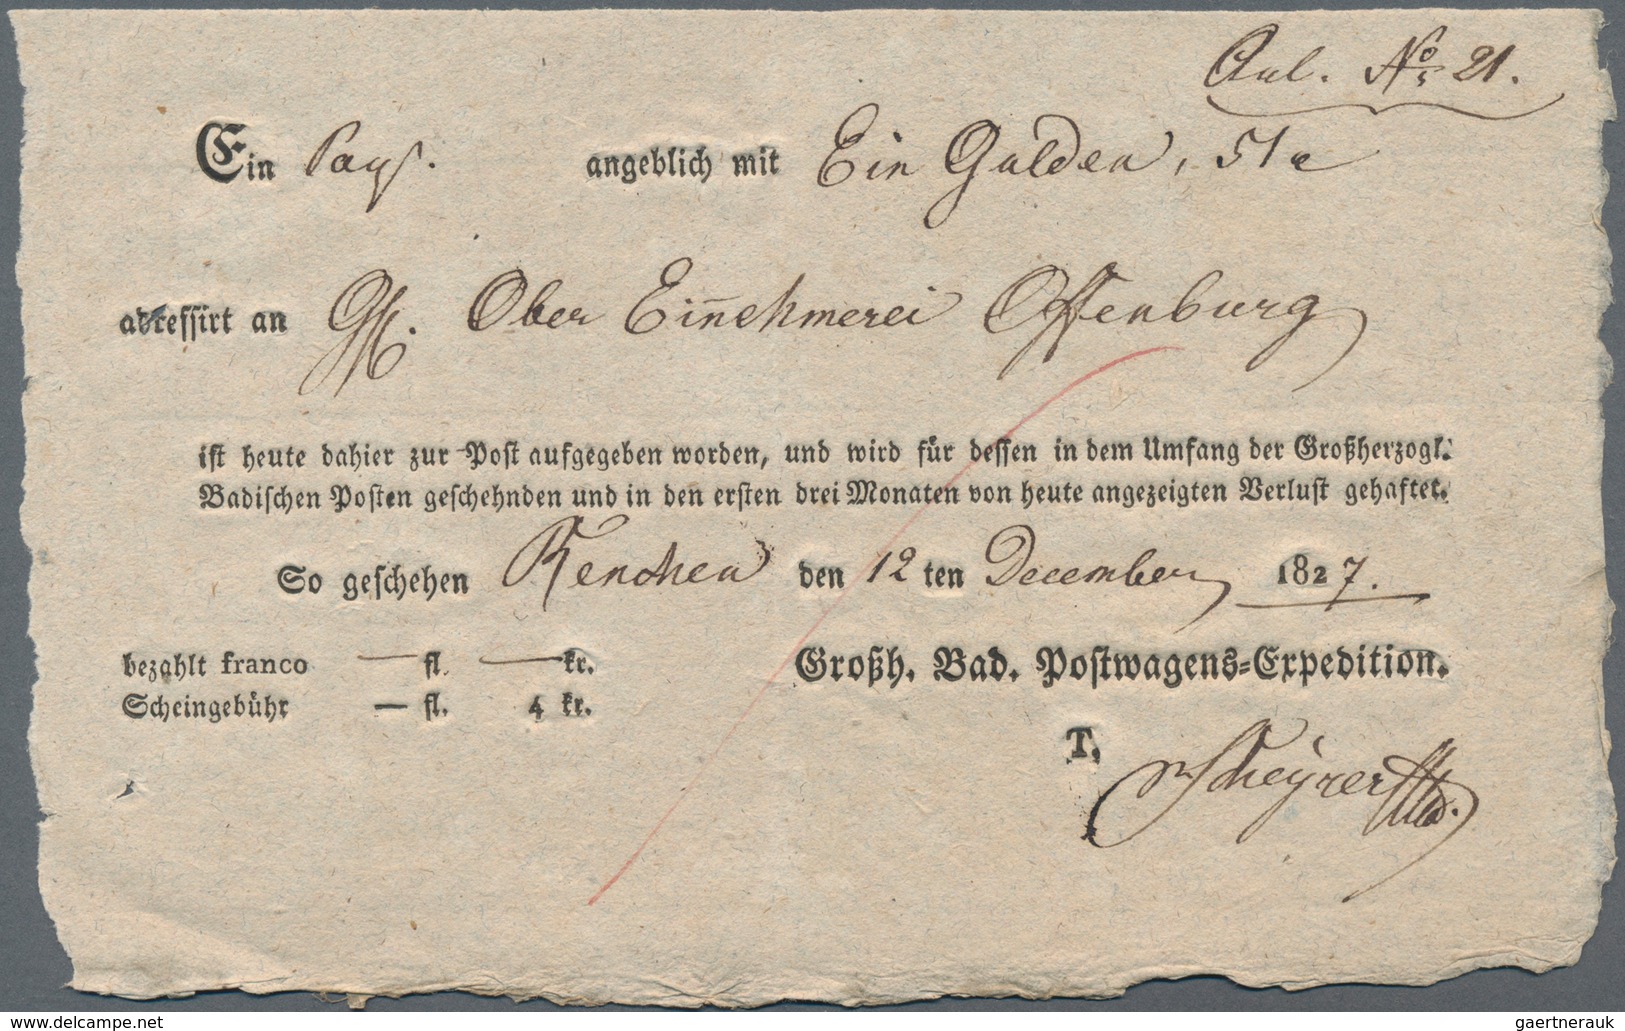 Anl. No. 21.
Ein Paqt. angeblich mit Ein Gulden, 51 x
adressirt an Gh. Ober Einnehmerei Offenburg
ist heute dahier zur Post aufgegeben worden, und wird für dessen in dem Umfang der Großherzogl.
Badischen Posten geschehnden und in den ersten drei Monaten von heute angezeigten Verlust gehaftet.
So geschehen Renchen den 12 ten December 1827.
bezahlt franco — fl. — kr. Großh. Bad. Postwagens-Expedition.
Scheingebühr — fl. 4 kr.
T. Scheyrer
www.delcampe.net
gaertnerauk